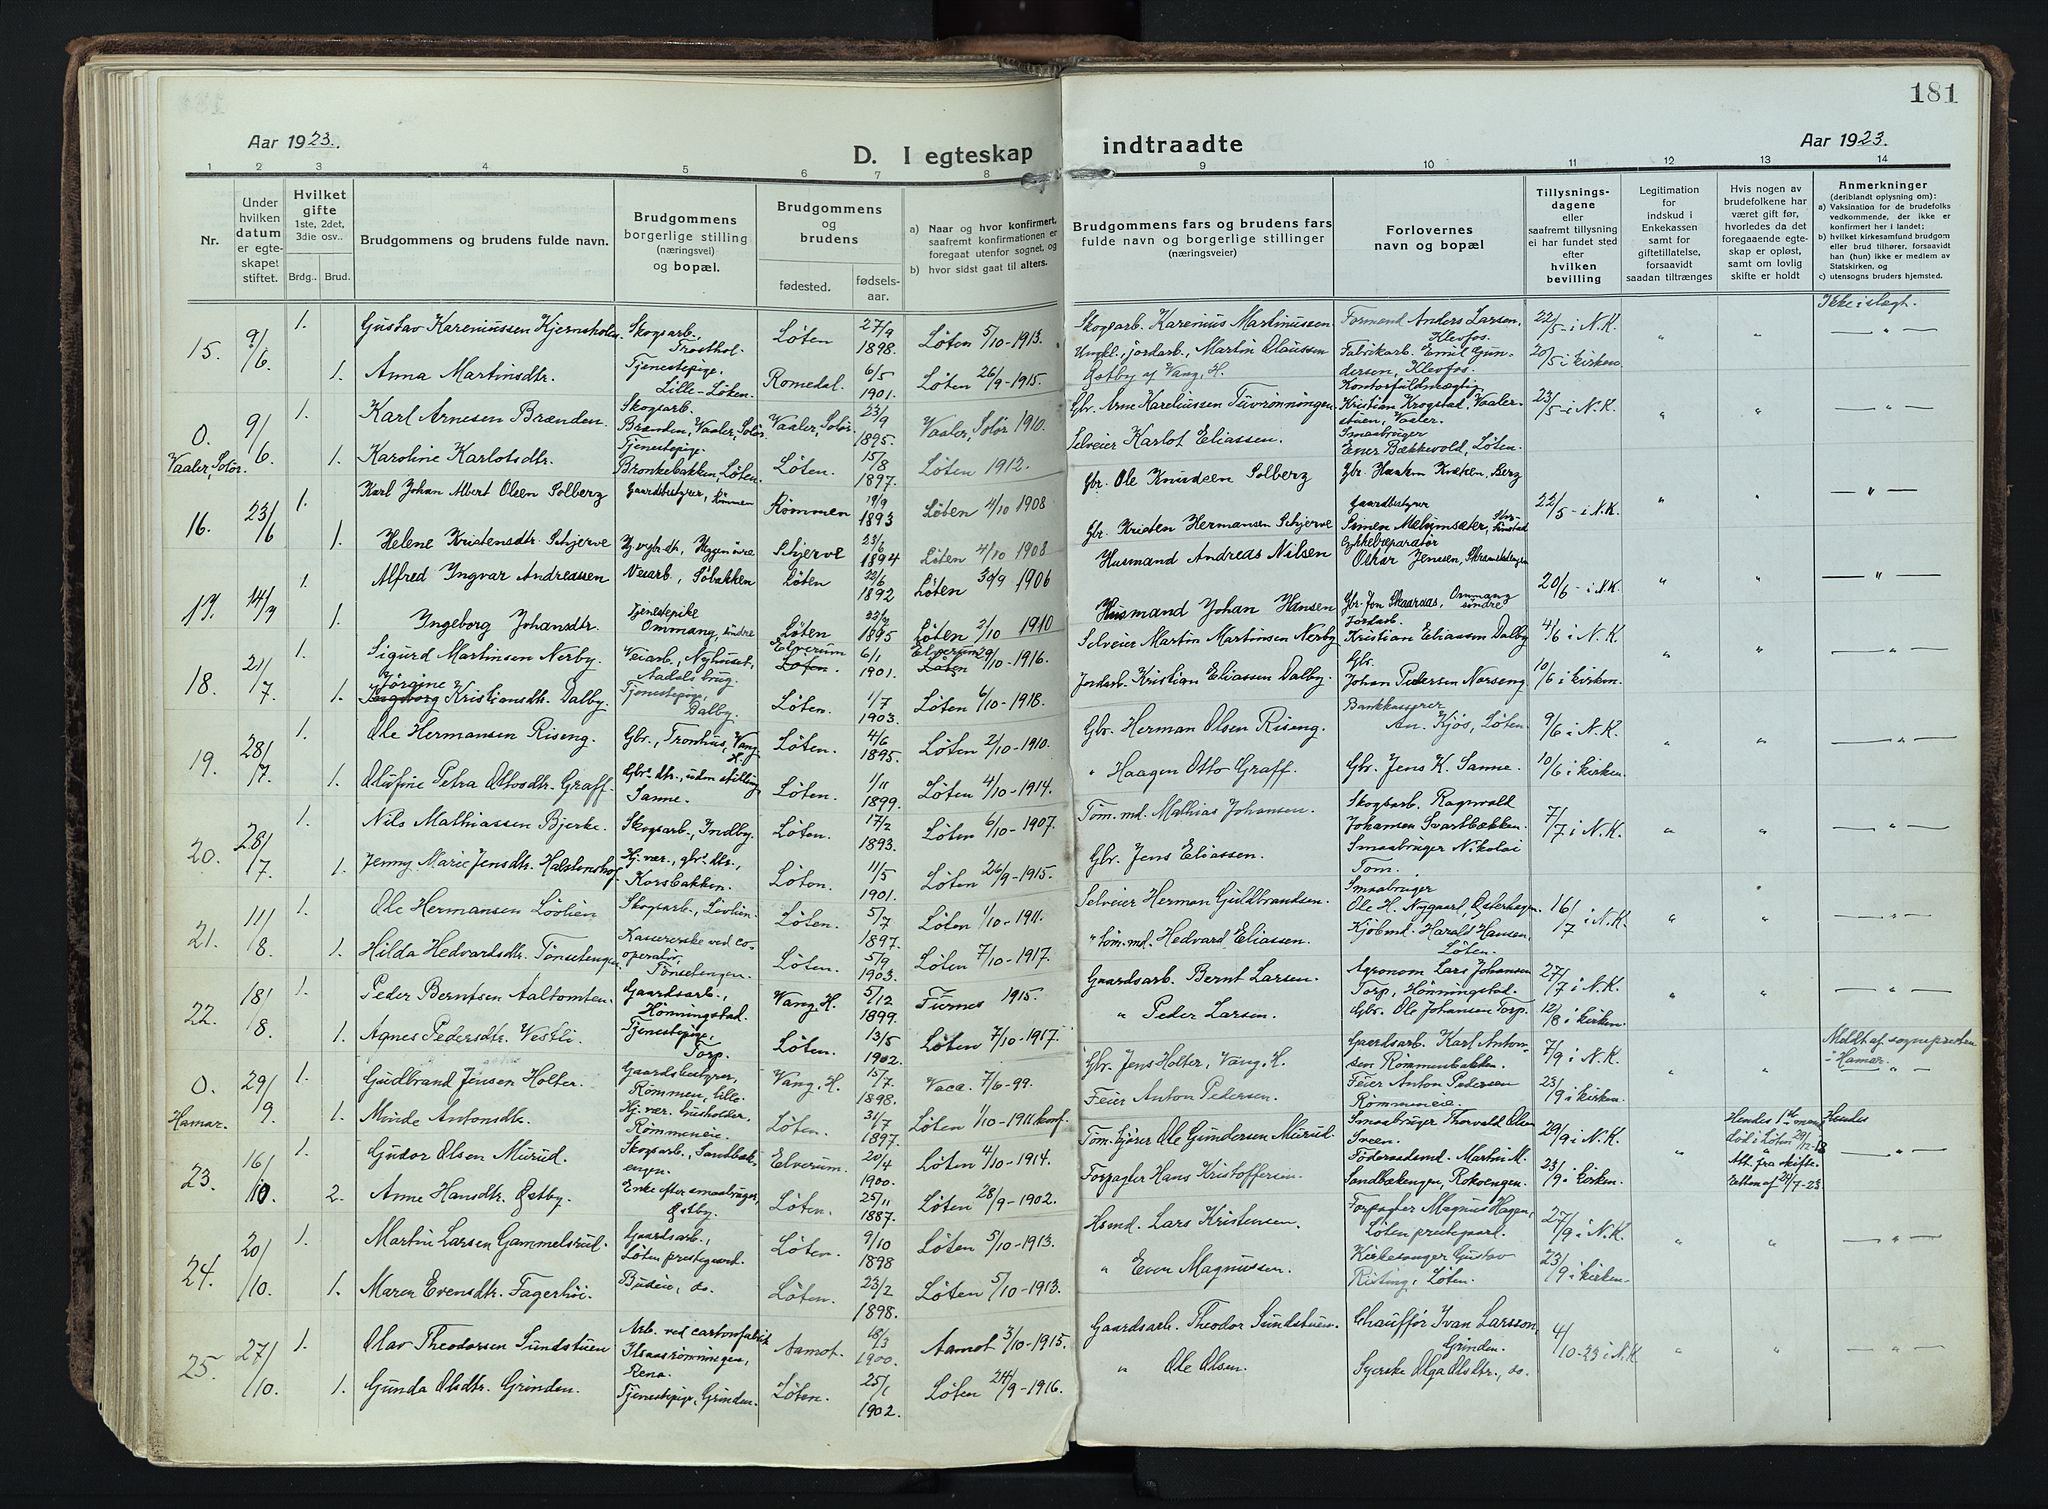 181
Aar 1923.
D. I egteskap
indtraadte
Aar 1923.
1 2 3 4 5 6 7 8 9 10 11 12 13 14
Nr.
Under hvilken datum er egteskapet stiftet.
Hvilket gifte 1ste, 2det, 3die osv..
Brdg.. Brud.
Brudgommens og brudens fulde navn.
Brudgommens borgerlige stilling (næringsvei) og bopæl.
Brudgommens og brudens
fødested. fødselsaar.
a) Naar og hvor konfirmert, saafremt konfirmationen er foregaat utenfor sognet, og
b) hvor sidst gaat til alters.
Brudgommens fars og brudens fars fulde navn og borgerlige stillinger (næringsveier)
Forlovernes navn og bopæl
Tillysningsdagene eller saafremt tillysning ei har fundet sted efter hvilken bevilling
Legitimation for indskud i Enkekassen samt for giftetillatelse, forsaavidt saadan tiltrænges
Hvis nogen av brudefolkene har været gift før, hvorledes da det foregaaende egteskap er opløst, samt om lovlig skifte er holdt
Anmerkninger (deriblandt oplysning om):
a) Vaksination for de brudefolks vedkommende, der ikke er konfirmert her i landet;
b) hvilket kirkesamfund brudgom eller brud tilhører, forsaavidt han (hun) ikke er medlem av Statskirken, og
c) utensogns bruders hjemsted.
15. 9/6 1. Gustav Kareniussen Kjernsholen Skogsarb. Trosthol. Løten 27/9 1898. Løten 5/10-1913. Skogsarb. Karenius Martinussen Formend Anders Larsen, Klevfos. 22/5 i N.K. " " Ikke i slegt.
1. Anna Martinsdtr. Tjenestepige, Lille-Løten. Romedal. 6/5 1901. Løten 26/9-1915. Ungk., jordarb., Martin Olaussen Østby af Vang, H. Fabrikarb. Emil Gundersen, Klevfos. 20/5 i kirken
0. Vaaler, Solør. 9/6 1. Karl Arnesen Brænden. Skogsarb. Brænden, Vaaler, Solør. Vaaler, Solør. 23/9 1895. Vaaler, Solør 1910. Gbr. Arne Kareliussen Tuvrønningen Kontorfuldmægtig Kristian Krogstad, Vaalerstuen, Vaaler. 23/5 i N.K. " " — " —
1. Karoline Karlotsdtr. Tjenestepige. Bronkebakken, Løten. Løten. 15/8 1897. Løten 1912. Selveier Karlot Eliassen. Smaabruger Ener Bækkevold, Løten.
16. 23/6 1. Karl Johan Albert Olsen Solberg Gaardsbestyrer, Rømmen Rømmen 19/9 1893 Løten 4/10 1908 Gbr. Ole Knudsen Solberg Gbr. Haakon Kvæken, Berg 22/5 - i N.K. " " — " —
1. Helene Kristensdtr. Schjerve Schjerve 23/6 1894 Løten 4/10 1908 Gbr. Kristen Hermansen Schjerve Gaardbestyrer Simen Mælumsæter,
17. 14/7 1. Alfred Ingvar Andreassen Veiarb., Søbakken Løten 22/6 1892 Løten 30/9 1906 Husmand Andreas Nilsen Oskar Jensen, 20/6 - i N.K. " " — " —
1. Ingeborg Johansdtr. Tjenestepike Ommang, søndre Løten 1895 Løten 2/10 1910 Husmand Johan Hansen Gbr. Jon Skaarnæs, Ommang søndre
18. 21/7 1. Sigurd Martinsen Nerby. Veiarb., Nyhuset, Aadals brug. Elverum Løten. 6/1 1901. Elverum Løten 29/10-1916. Selveier Martin Martinsen Nerby Jordarb. Kristian Eliassen Dalby 4/6 i N.K. " " — " —
1. Jørgine Ingeborg Kristiansdtr. Dalby. Tjenestepige, Dalby. Løten. 1/7 1903. Løten 6/10-1918. Jordarb. Kristian Eliassen Dalby. Gbr. Johan Pedersen Norseng 10/6 i kirken.
19. 28/7 1. Ole Hermansen Riseng. Gbr., Tronhus, Vang H. Løten. 4/6 1895. Løten 2/10-1910. Gbr. Herman Olsen Riseng. Bankkasserer An. Kjøs, Løten. 9/6 i N.K. " " — " —
1. Olufine Petra Ottosdtr. Graff. Gbr.dtr., uden stilling Sanne. Løten. 1/11 1899. Løten 4/10-1914. " Haagen Otto Graff. Gbr. Jens K. Sanne. 10/6 i kirken.
20. 28/7 1. Nils Mathiassen Bjerke. Skogsarb., Indby. Løten. 17/2 1893. Løten 6/10-1907. Tøm.md. Mathias Johansen. Skogsarb. Ragnvald Johansen Svartbækken. 7/7 i N.K. " " — " —
1. Jenny Marie Jensdtr. Halstenshof. Hj.vær., gbr.dtr., Korsbakken. Løten. 11/5 1901. Løten 26/9-1915. Gbr. Jens Eliassen. Smaabruger Nikolai Tom.
21. 11/8 1. Ole Hermansen Lövlien Skogsarb., Lövlien. Løten. 5/7 1897. Løten 1/10-1911. Selveier Herman Guldbrandsen. Smaabruger Ole H. Nygaard, Østerhagen. 16/7 i N.K. " " — " —
1. Hilda Hedvardsdtr. Tønsetengen Kassererske ved cooperativ, Tønsetengen. Løten. 5/9 1903. Løten 7/10-1917. " tøm.md. Hedvard Eliassen. Kjøbmd. Harald Hansen, Løten.
22. 18/8 1. Peder Berntsen Aaltomten. Gaardsarb., Hønningstad. Vang, H. 5/12 1899. Furnes 1915. Gaardsarb. Bernt Larsen. Agronom Lars Johansen Torp, Hønningstad. 27/7 i N.K. " " — " —
1. Agnes Pedersdtr. Vestli. Tjenestepige, Torp. Løten. 13/5 1902. Løten 7/10-1917. " Peder Larsen. Gbr. Ole Johansen Torp. 12/8 i kirken.
0. Hamar. 29/9 1. Gudbrand Jensen Holter. Gaardsbestyrer, Rømmen, lille. Vang, H. 15/7 1898. Vaca. 7/6-99. Gbr. Jens Holter, Vang, H. Gaardsarb. Karl Antonsen Rømmenbakken. 7/9 i N.K. " " Meldt af sognepresten i Hamar. — " —
1. Minde Antonsdtr. Hj.vær. husholder, Rømmeneie. Løten. 31/7 1897. Løten 1/10-1911 konf. Feier Anton Pedersen. Feier Anton Pedersen Rømmeneie. 23/9 i kirken.
23. 16/10 1. Gudor Olsen Murud. Skogsarb., Sandbækengen. Elverum. 20/4 1900. Løten 4/10-1914. Tømkjører Ole Gundersen Murud. Smaabruger Thorvald Olsen Sveen. 29/9 i N.K. " Hendes 1ste mand død i Løten Att. fra skifteretten af 21/7-23. Hendes — " —
2. Anne Hansdtr. Østby. Enke efter smaabruger, Østby. Løten. 25/11 1887. Løten 28/9-1902. Forpagter Hans Kristoffersen. Föderaadsmd. Martin M. Sandbækengen, Rokvengen. 23/9 i kirken.
24. 20/10 1. Martin Larsen Gammelsrud. Gaardsarb., Løten prestegaard. Løten. 9/10 1898 Løten 5/10-1913. Hsmd. Lars Kristensen. Forpagter Magnus Hagen, Løten prestegaard. 27/9 i N.K. " " — " —
1. Maren Evensdtr. Fagerhöi. Budeie, do. Løten. 23/2 1898. Løten 5/10-1913. " Even Magnussen. Kirkesanger Gustav Risting, Løten. 23/9 i kirken.
25. 27/10 1. Olav Theodorsen Sundstuen Arb. ved cartonfabrik Ilsaasrønningen, Rena. Aamot. 18/3 1900. Aamot 3/10-1915. Gaardsarb. Theodor Sundstuen. Chauffør Ivan Larsson, Grinden. 4/10-23 i N.K. " " — " —
1. Gunda Olsdtr. Grinden. Tjenestepige, Grinden. Løten. 25/1 1902. Løten 24/9-1916. " Ole Olsen. Syerske Olga Olsdtr., do.